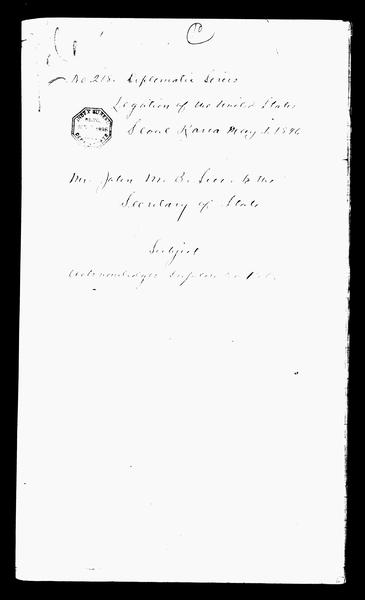 No. 218. Diplomatic Series
Legation of the United States
Seoul Korea May 1, 1896
Mr. John M. B. Sill to the
Secretary of State
Subject
Acknowledges